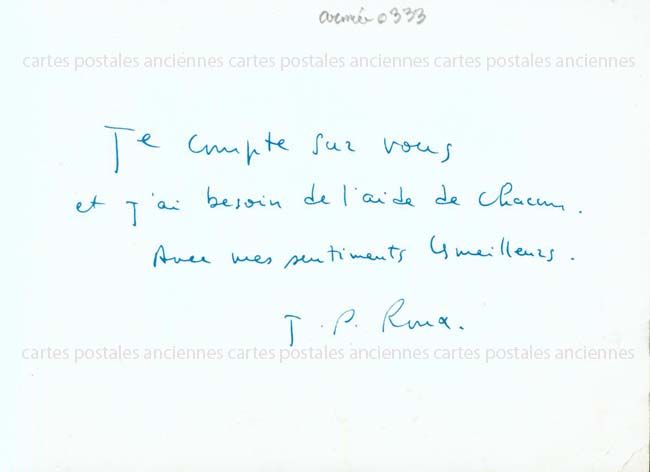 armée 0333
cartes postales anciennes cartes postales anciennes cartes postales anciennes
Je compte sur vous
et j'ai besoin de l'aide de chacun.
Avec mes sentiments les meilleurs.
J. P. Roux.
cartes postales anciennes cartes postales anciennes cartes postales anciennes